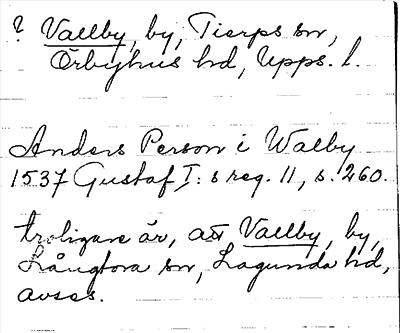 ? Vallby, by, Tierps sn,
Örbyhus hd, Upps. l.
Anders Person i Walby
1537 Gustaf I:s reg. 11, s. 260.
troligare är, att Vallby, by,
Långtora sn, Lagunda hd,
avses.